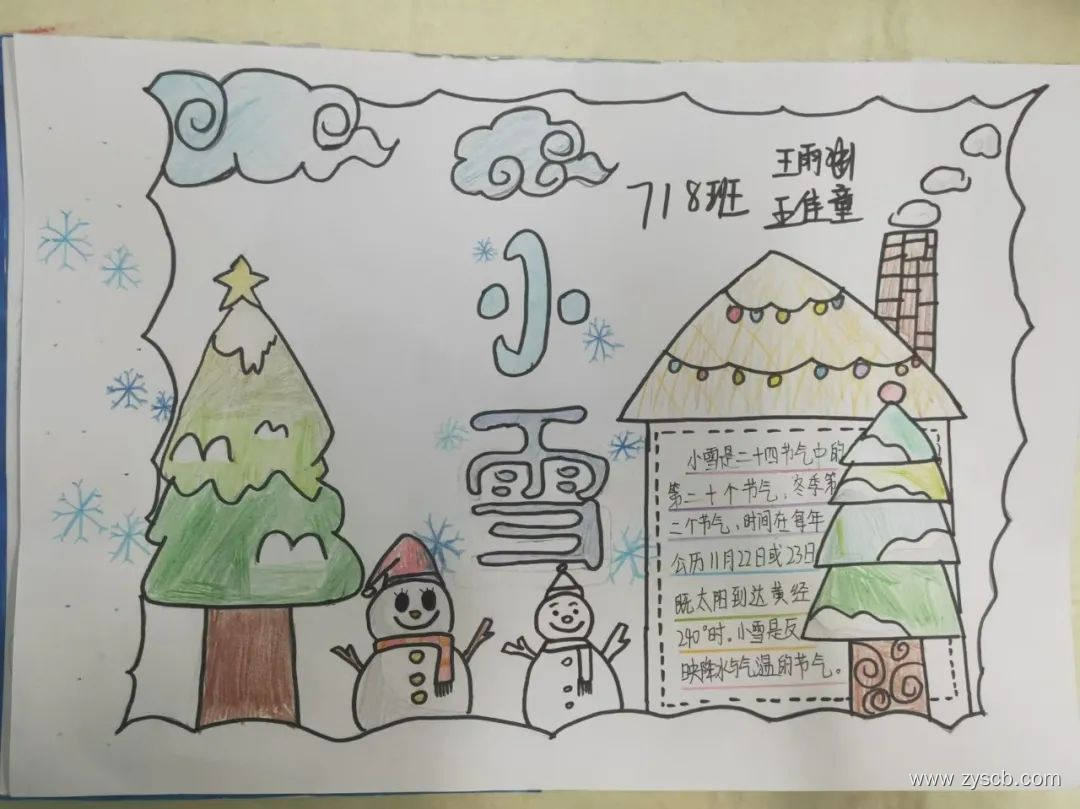 718班
王雨涵
王佳童
小雪
小雪是二十四节气中的
第二十个节气，冬季第
二个节气，时间在每年
公历11月22日或23日
既太阳到达黄经
240°时。小雪是反
映降水与气温的节气。
www.zyscb.com